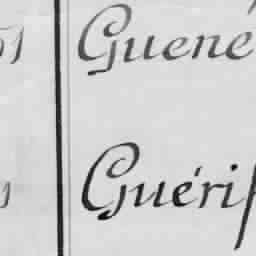 51 Guené
1 Guérif